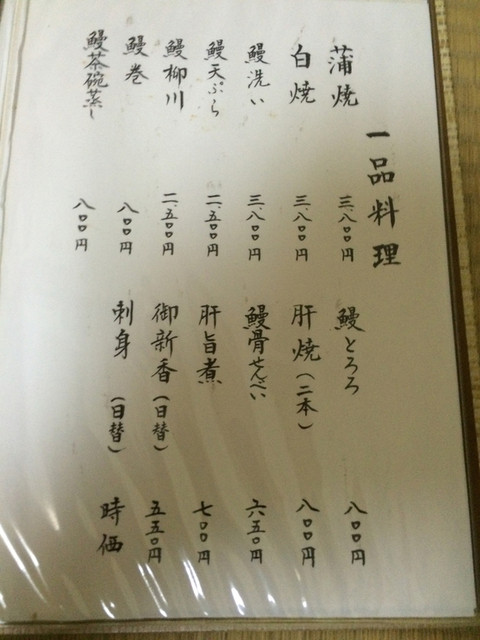 一品料理
蒲焼 三、八〇〇円
白焼 三、八〇〇円
鰻洗い 三、八〇〇円
鰻天ぷら 二、五〇〇円
鰻柳川 二、五〇〇円
鰻巻 八〇〇円
鰻茶碗蒸し 八〇〇円
鰻とろろ 八〇〇円
肝焼(二本) 八〇〇円
鰻骨せんべい 六五〇円
肝旨煮 七〇〇円
御新香(日替) 五五〇円
刺身(日替) 時価